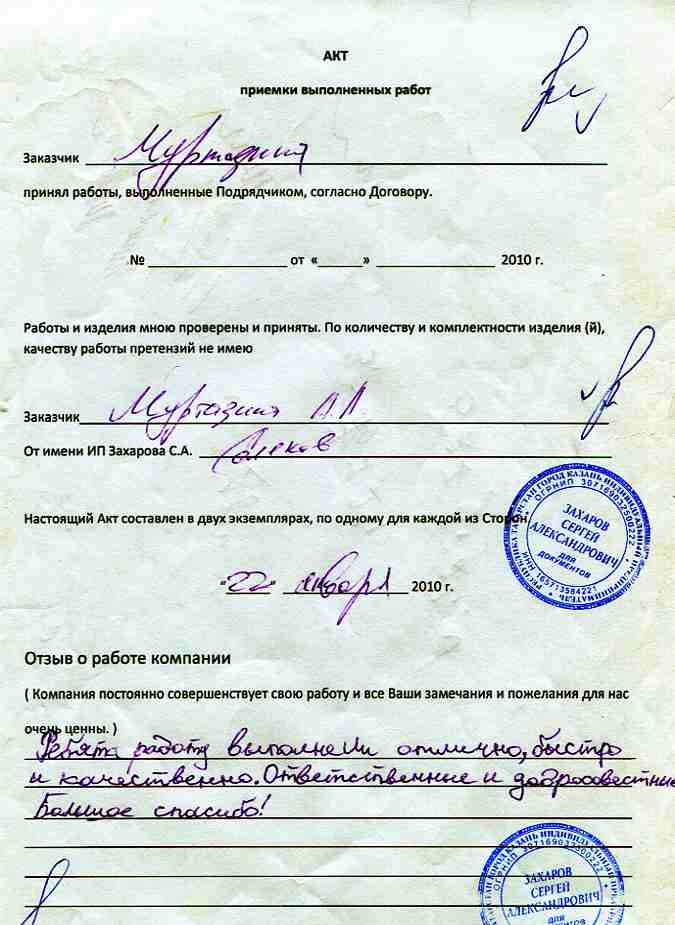 АКТ
приемки выполненных работ
Заказчик Муртазин
принял работы, выполненные Подрядчиком, согласно Договору.
№ от « » 2010 г.
Работы и изделия мною проверены и приняты. По количеству и комплектности изделия (й),
качеству работы претензий не имею
Заказчик Муртазин А.А.
От имени ИП Захарова С.А.
РЕСПУБЛИКА ТАТАРСТАН ГОРОД КАЗАНЬ ИНДИВИДУАЛЬНЫЙ ПРЕДПРИНИМАТЕЛЬ
ОГРНИП 307169032500222
ЗАХАРОВ
СЕРГЕЙ
АЛЕКСАНДРОВИЧ
ДЛЯ
ДОКУМЕНТОВ
ИНН 165713584221
Настоящий Акт составлен в двух экземплярах, по одному для каждой из Сторон
"22" января 2010 г.
Отзыв о работе компании
( Компания постоянно совершенствует свою работу и все Ваши замечания и пожелания для нас
очень ценны. )
Ребята работу выполнели отлично, быстро
и качественно. Ответственные и добросовестные
Большое спасибо!
ГОРОД КАЗАНЬ
ОГРНИП 307169032500222
ЗАХАРОВ
СЕРГЕЙ
АЛЕКСАНДРОВИЧ
ДЛЯ